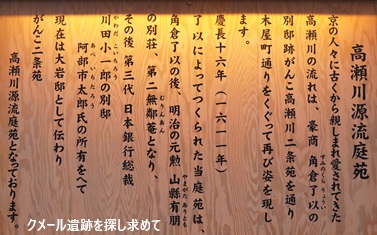 高瀬川源流庭苑
京の人々に古くから親しまれ愛されてきた
高瀬川の流れは、豪商 角倉了以の
すみのくら りょうい
別邸跡がんこ高瀬川二条苑を通り
木屋町通りをくぐって再び姿を現し
ます。
慶長十六年（一六一一年）
了以によってつくられた当庭苑は、
角倉了以の後、明治の元勲 山縣有朋
やまがた ありとも
の別荘、第二無鄰菴となり、
むりんあん
その後、第三代 日本銀行総裁
川田小一郎の別邸
かわだ こいちろう
阿部市太郎氏の所有をへて
あべ いちたろう
現在は大岩邸として伝わり
がんこ二条苑
高瀬川源流庭苑となっております。
クメール遺跡を探し求めて